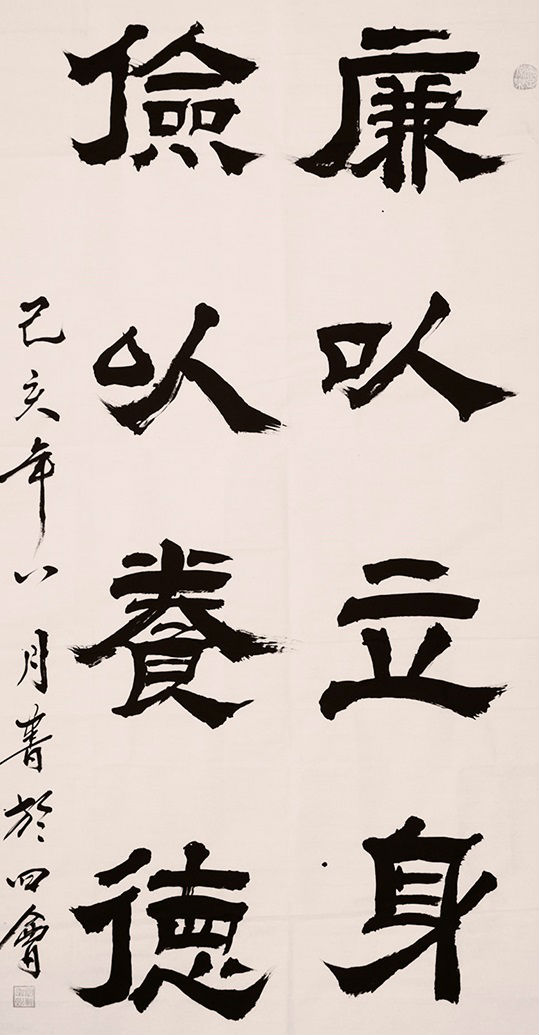 廉以立身
儉以養德
己亥年八月書於四會